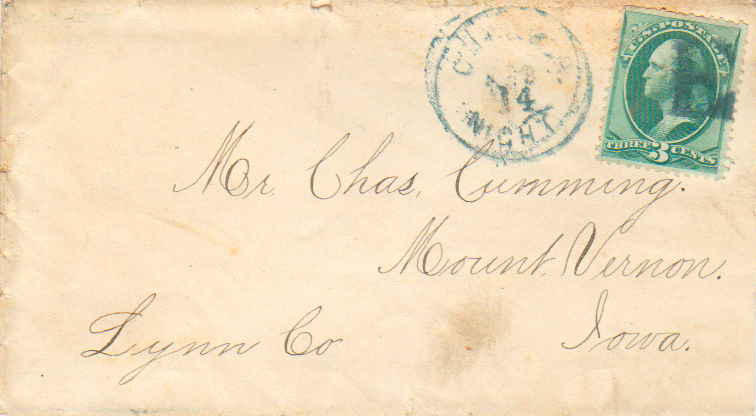 14
NIGHT
U.S. POSTAGE
THREE 3 CENTS
Mr. Chas. Cumming.
Mount Vernon.
Lynn Co Iowa.